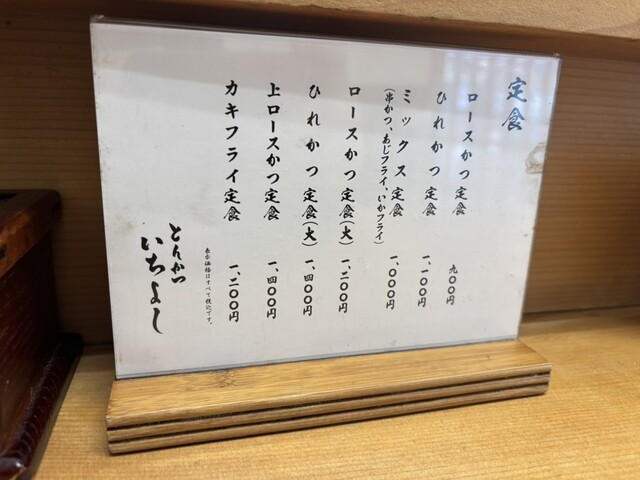 定食
ロースかつ定食 九〇〇円
ひれかつ定食 一、一〇〇円
ミックス定食 一、〇〇〇円
(串かつ、あじフライ、いかフライ)
ロースかつ定食(大) 一、二〇〇円
ひれかつ定食(大) 一、四〇〇円
上ロースかつ定食 一、四〇〇円
カキフライ定食 一、二〇〇円
表示価格はすべて税込です。
とんかつ
いちよし